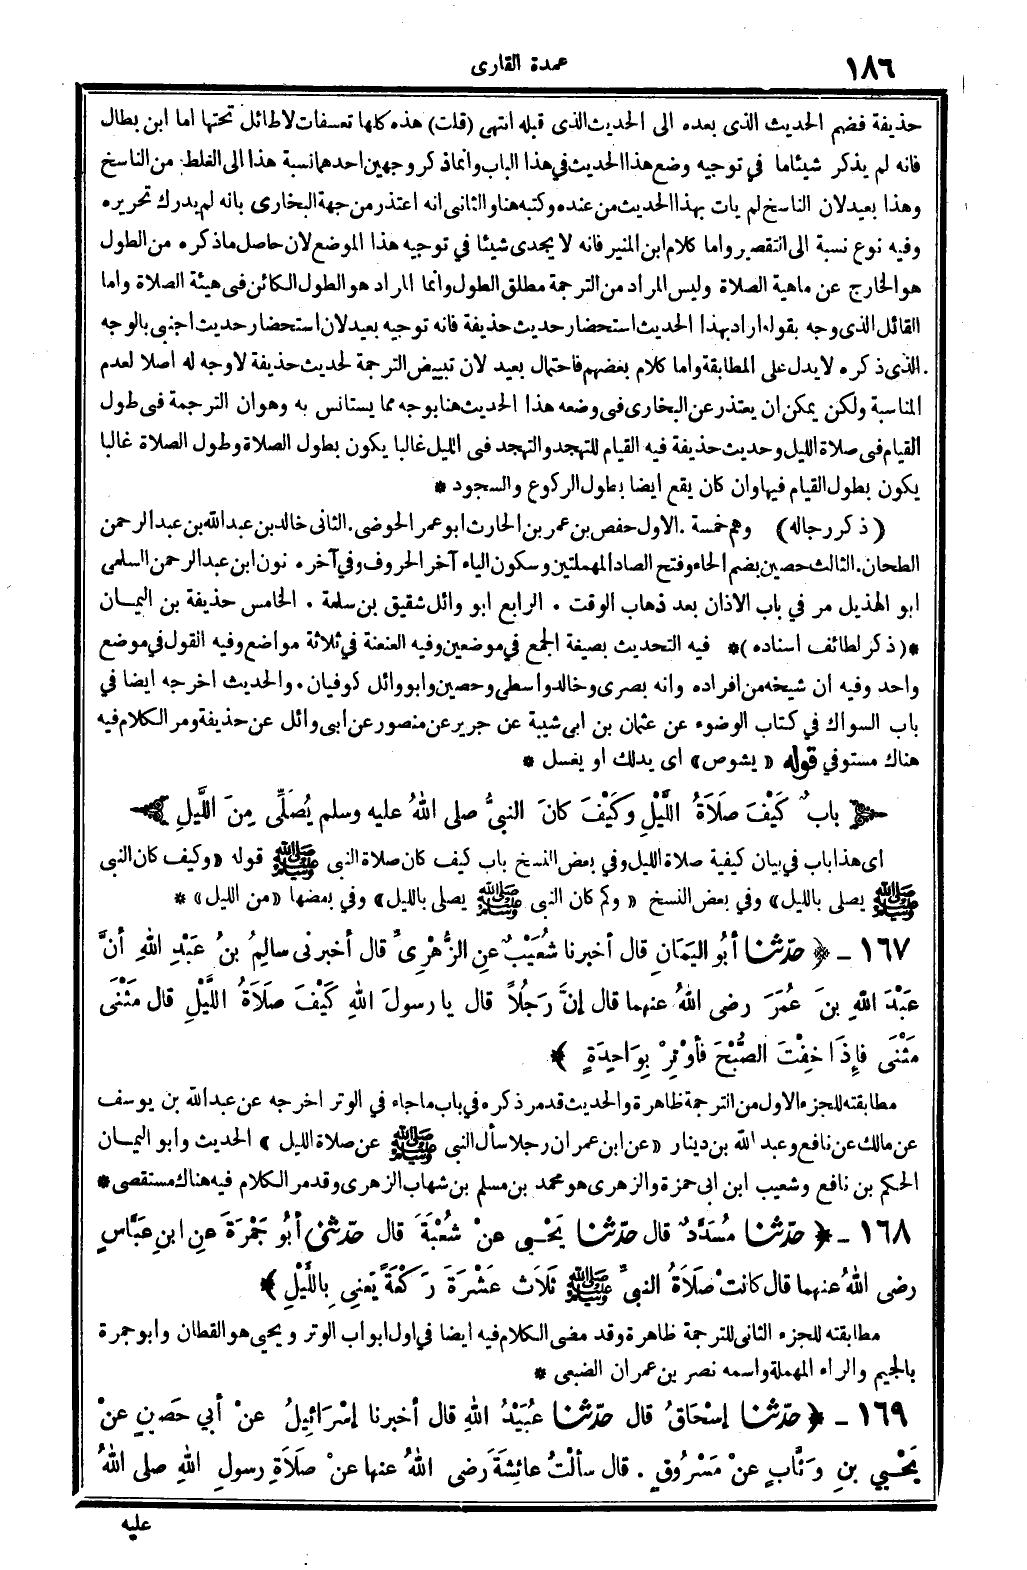 ١٨٦
عمدة القارى
حذيفة فضم الحديث الذى بعده الى الحديث الذى قبله انتهى (قلت) هذه كلها تعسفات لا طائل تحتها اما ابن بطال
فانه لم يذكر شيئا ما في توجيه وضع هذا الحديث في هذا الباب وانما ذكر وجهين احدهما نسبة هذا الى الغلط من الناسخ
وهذا بعيد لان الناسخ لم يات بهذا الحديث من عنده وكتبه هنا والثانى انه اعتذر من جهة البخارى بانه لم يدرك تحريره
وفيه نوع نسبة الى التقصير واما كلام ابن المنير فانه لا يجدى شيئا في توجيه هذا الموضع لان حاصل ما ذكره من الطول
هو الخارج عن ماهية الصلاة وليس المراد من الترجمة مطلق الطول وانما المراد هو الطول الكائن فى هيئة الصلاة واما
القائل الذى وجه بقوله اراد بهذا الحديث استحضار حديث حذيفة فانه توجيه بعيد لان استحضار حديث اجنبى بالوجه
الذى ذكره لا يدل على المطابقة واما كلام بعضهم فاحتمال بعيد لان تبييض الترجمة لحديث حذيفة لا وجه له اصلا لعدم
المناسبة ولكن يمكن ان يعتذر عن البخارى فى وضعه هذا الحديث هنا بوجه مما يستانس به وهو ان الترجمة فى طول
القيام فى صلاة الليل وحديث حذيفة فيه القيام للتهجد والتهجد فى الليل غالبا يكون بطول الصلاة وطول الصلاة غالبا
يكون بطول القيام فيها وان كان يقع ايضا بطول الركوع والسجود *
(ذكر رجاله) وهم خمسة. الاول حفص بن عمر بن الحارث ابو عمر الحوضى. الثانى خالد بن عبد الله بن عبد الرحمن
الطحان. الثالث حصين بضم الحاء وفتح الصاد المهملتين وسكون الياء آخر الحروف وفي آخره نون ابن عبد الرحمن السلمى
ابو الهذيل مر في باب الاذان بعد ذهاب الوقت. الرابع ابو وائل شقيق بن سلمة. الخامس حذيفة بن اليمان
*(ذكر لطائف اسناده)* فيه التحديث بصيغة الجمع في موضعين وفيه العنعنة في ثلاثة مواضع وفيه القول في موضع
واحد وفيه ان شيخه من افراده وانه بصرى وخالد واسطى وحصين وابو وائل كوفيان. والحديث اخرجه ايضا في
باب السواك في كتاب الوضوء عن عثمان بن ابى شيبة عن جرير عن منصور عن ابى وائل عن حذيفة ومر الكلام فيه
هناك مستوفي قوله «يشوص» اى يدلك او يغسل *
باب كَيْفَ صَلَاَةُ اللَّيْلِ وكَيْفَ كانَ النبىُّ صلى اللهُ عليه وسلم يُصَلِّى مِنَ اللَّيلِ
اى هذا باب في بيان كيفية صلاة الليل وفي بعض النسخ باب كيف كان صلاة النبى ﷺ قوله «وكيف كان النبى
ﷺ يصلى بالليل» وفي بعض النسخ «وكم كان النبى ﷺ يصلى بالليل» وفي بعضها «من الليل» *
١٦٧ - ﴿ حدّثنا أبُو اليَمَانِ قال أخبرنا شُعَيْبٌ عنِ الزُّهْرِىِّ قال أخبرنى سالِمُ بنُ عَبْدِ اللهِ أنَّ
عَبْدَ اللهِ بنَ عُمَرَ رضى اللهُ عنهما قال إنَّ رَجُلاً قال يا رسولَ اللهِ كَيْفَ صَلَاَةُ اللَّيْلِ قال مَثْنَى
مَثْنَى فإِذَا خِفْتَ الصُّبْحَ فأوْتِرْ بِوَاحِدَةٍ ﴾ *
مطابقته للجزء الاول من الترجمة ظاهرة والحديث قد مر ذكره في باب ما جاء في الوتر اخرجه عن عبد الله بن يوسف
عن مالك عن نافع وعبد الله بن دينار «عن ابن عمر ان رجلا سأل النبى ﷺ عن صلاة الليل» الحديث وابو اليمان
الحكم بن نافع وشعيب ابن ابى حمزة والزهرى هو محمد بن مسلم بن شهاب الزهرى وقد مر الكلام فيه هناك مستقصى *
١٦٨ - ﴿ حدّثنا مُسَدَّدٌ قال حدّثنا يَحْيى عنْ شُعْبَةَ قال حدّثنى أبُو جَمْرَةَ عنِ ابنِ عَبَّاسٍ
رضى اللهُ عنهما قال كانَتْ صَلَاَةُ النبىِّ ﷺ ثَلَاثَ عَشْرَةَ رَكْعَةً يَعنِى بِاللَّيْلِ ﴾
مطابقته للجزء الثانى للترجمة ظاهرة وقد مضى الكلام فيه ايضا في اول ابواب الوتر ويحيى هو القطان وابو جمرة
بالجيم والراء المهملة واسمه نصر بن عمران الضبعى *
١٦٩ - ﴿ حدّثنا إسْحَاقُ قال حدّثنا عُبَيْدُ اللهِ قال أخبرنا إسْرَائِيلُ عنْ أبي حَصِينٍ عنْ
يَحْيى بنِ وَثَّابٍ عنْ مَسْرُوقٍ. قال سألْتُ عائِشَةَ رضى اللهُ عنها عنْ صَلَاَةِ رسولِ اللهِ صلى اللهُ
عليه